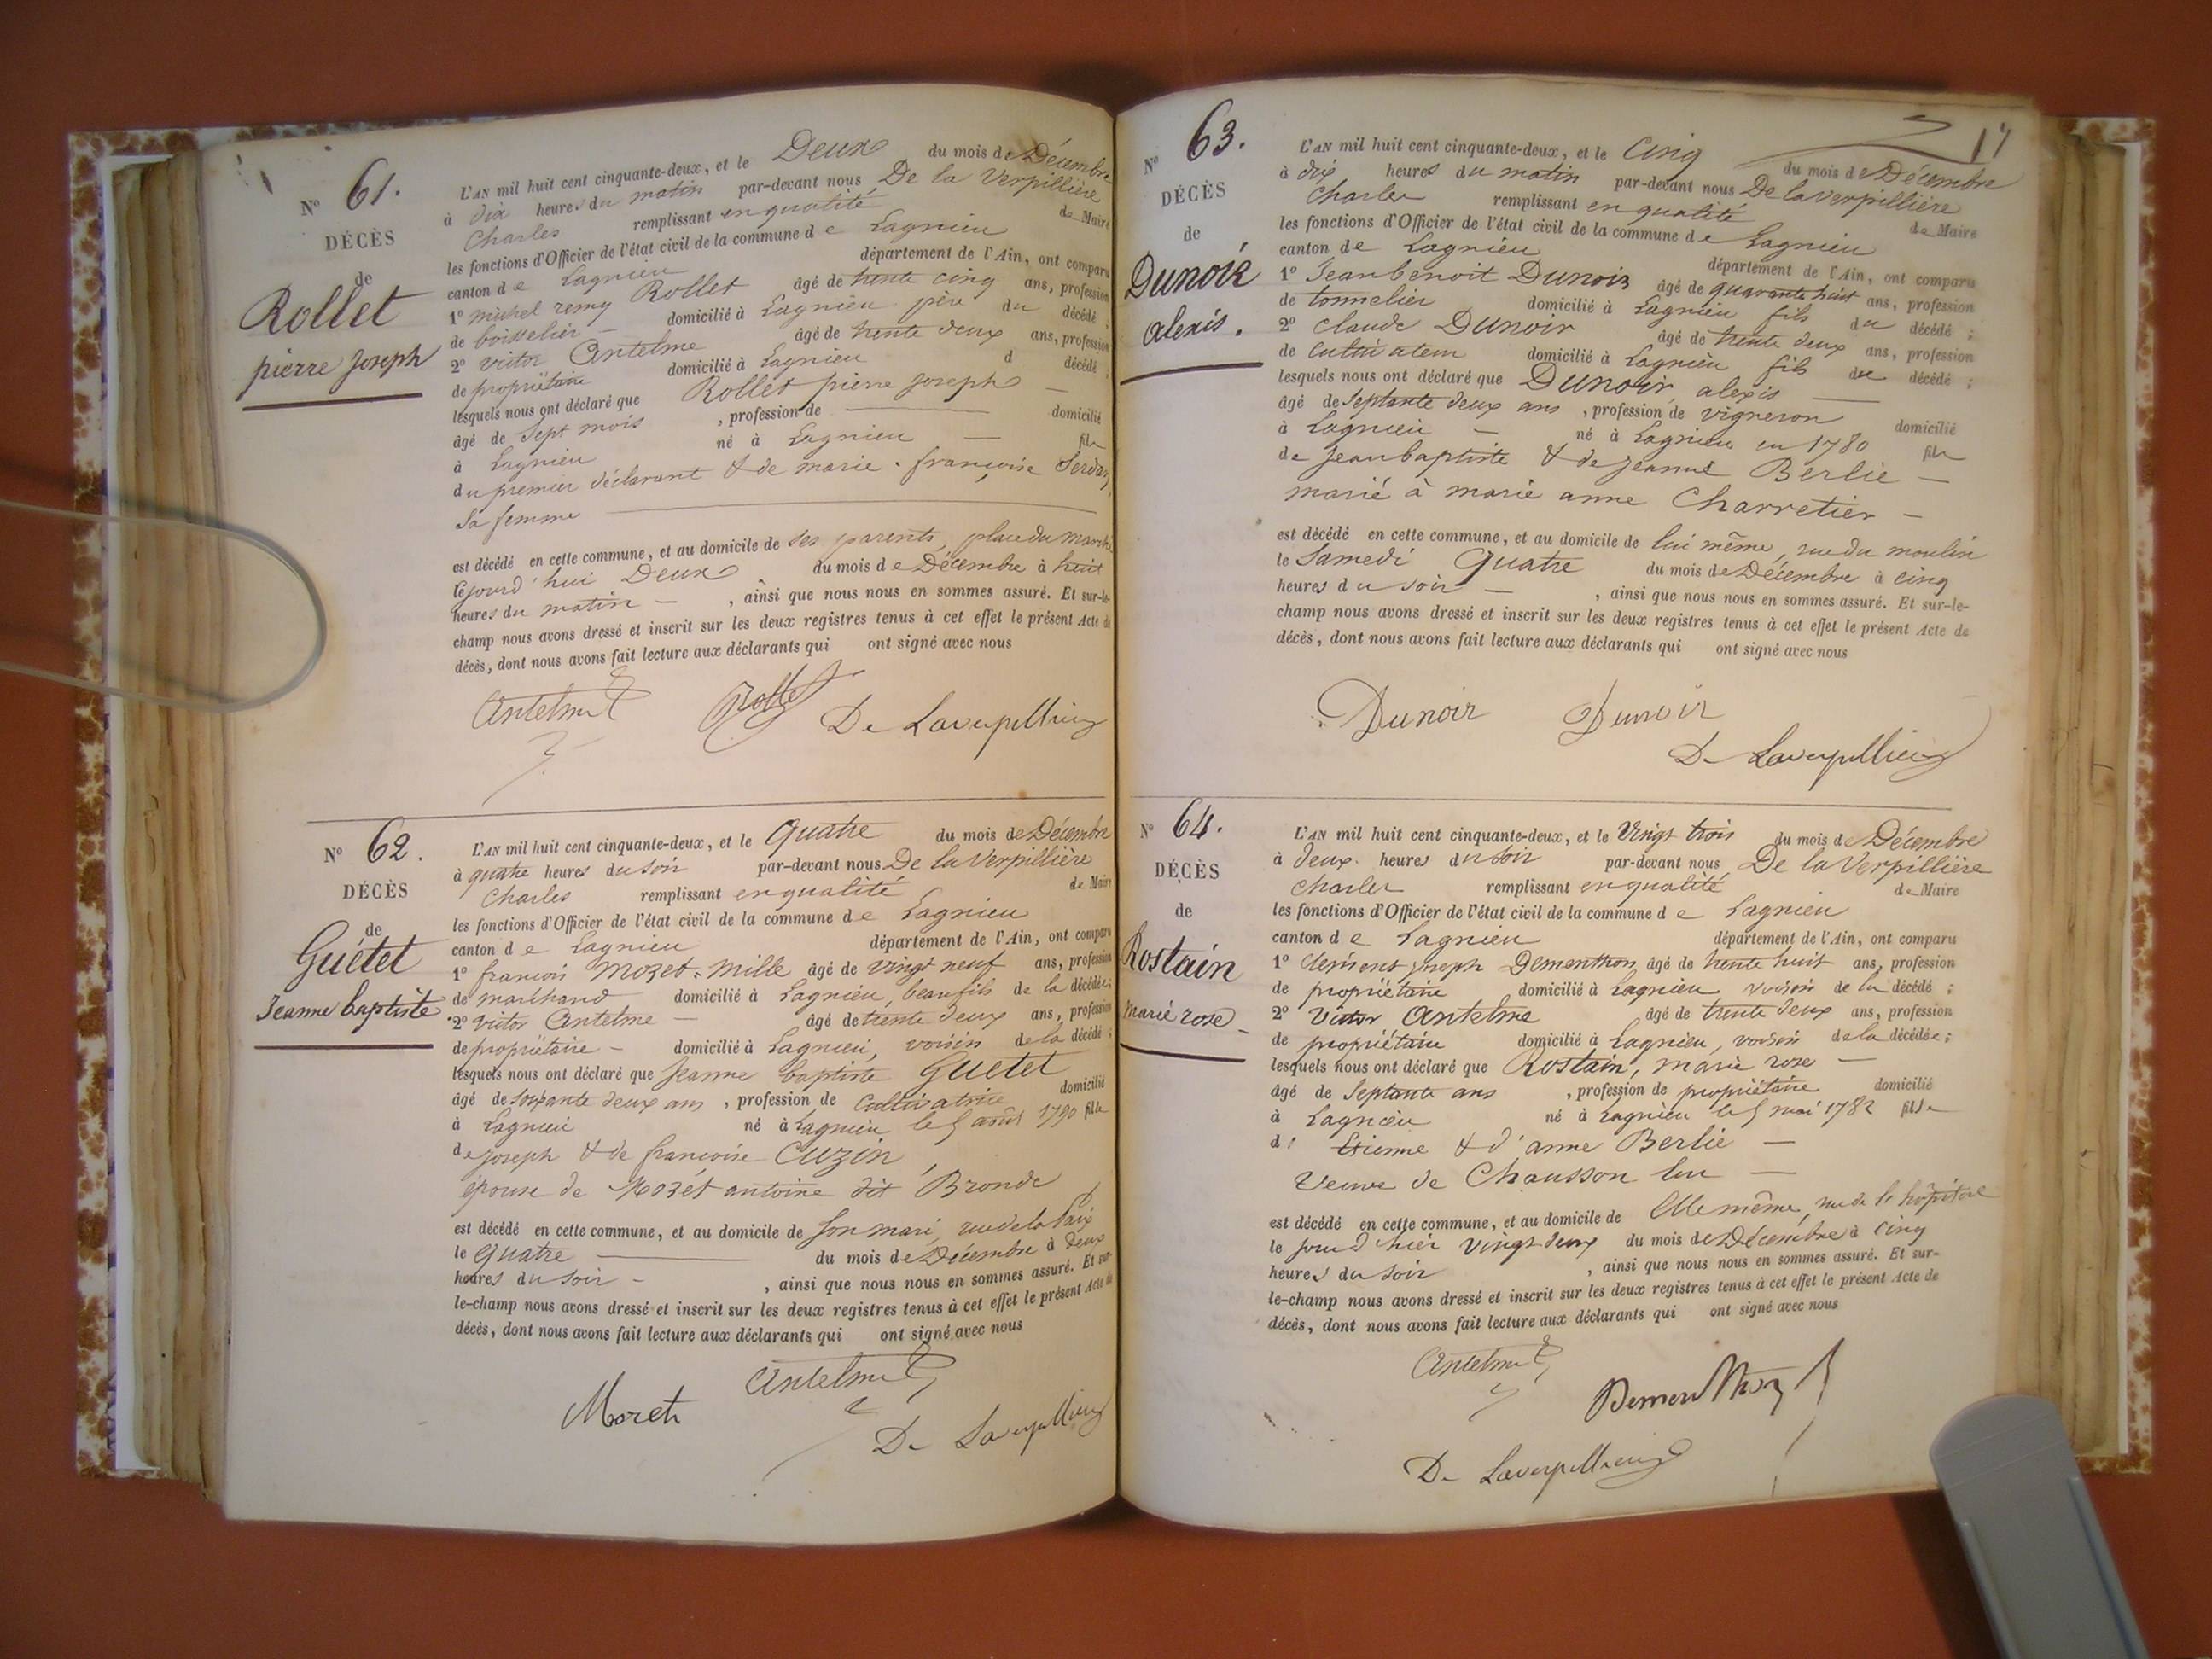 N° 61.
DÉCÈS
de
Rollet
pierre Joseph
L'AN mil huit cent cinquante-deux, et le Deux du mois de Décembre
à dix heures du matin par-devant nous De la Verpillière
Charles remplissant en qualité de Maire
les fonctions d'Officier de l'état civil de la commune de Lagnieu
canton de Lagnieu département de l'Ain, ont comparu
1° michel remy Rollet âgé de trente cinq ans, profession
de boisselier domicilié à Lagnieu père du décédé ;
2° victor Antelme âgé de trente deux ans, profession
de propriétaire domicilié à Lagnieu d décédé ;
lesquels nous ont déclaré que Rollet pierre Joseph
âgé de Sept mois , profession de domicilié
à Lagnieu né à Lagnieu fils
du premier déclarant & de marie françoise
sa femme
est décédé en cette commune, et au domicile de ses parents, place du marché
le jourd'hui Deux du mois de Décembre à huit
heures du matin , ainsi que nous nous en sommes assuré. Et sur-le-
champ nous avons dressé et inscrit sur les deux registres tenus à cet effet le présent Acte de
décès, dont nous avons fait lecture aux déclarants qui ont signé avec nous
Antelme Rollet De Laverpillière
N° 62.
DÉCÈS
de
Guétet
Jeanne baptiste
L'AN mil huit cent cinquante-deux, et le Quatre du mois de Décembre
à quatre heures du soir par-devant nous De la Verpillière
Charles remplissant en qualité de Maire
les fonctions d'Officier de l'état civil de la commune de Lagnieu
canton de Lagnieu département de l'Ain, ont comparu
1° françois Mozet-Mille âgé de vingt neuf ans, profession
de marchand domicilié à Lagnieu, beaufils de la décédée;
2° Victor Antelme âgé de trente deux ans, profession
de propriétaire domicilié à Lagnieu, voisin de la décédé ;
lesquels nous ont déclaré que Jeanne baptiste Guetet
âgé de soixante deux ans , profession de Cultivatrice domicilié
à Lagnieu né à Lagnieu le 5 août 1790 fille
de Joseph & de françoise Cuzin
épouse de Mozet antoine dit Bronde
est décédé en cette commune, et au domicile de son mari, rue de la Paix
le Quatre du mois de Décembre à deux
heures du soir , ainsi que nous nous en sommes assuré. Et sur-
le-champ nous avons dressé et inscrit sur les deux registres tenus à cet effet le présent Acte de
décès, dont nous avons fait lecture aux déclarants qui ont signé avec nous
Antelme
De Laverpillière
17
N° 63.
DÉCÈS
de
Dunoir
alexis.
L'AN mil huit cent cinquante-deux, et le Cinq du mois de Décembre
à dix heures du matin par-devant nous De la Verpillière
Charles remplissant en qualité de Maire
les fonctions d'Officier de l'état civil de la commune de Lagnieu
canton de Lagnieu département de l'Ain, ont comparu
1° Jean benoit Dunoir âgé de quarante huit ans, profession
de tonnelier domicilié à Lagnieu fils du décédé ;
2° Claude Dunoir âgé de trente deux ans, profession
de cultivateur domicilié à Lagnieu fils du décédé ;
lesquels nous ont déclaré que Dunoir, alexis
âgé de septante deux ans , profession de vigneron domicilié
à Lagnieu né à Lagnieu en 1780 fils
de Jean baptiste & de Jeanne Berlie
marié à marie anne Charretier
est décédé en cette commune, et au domicile de lui même, rue du moulin
le Samedi Quatre du mois de Décembre à cinq
heures du soir , ainsi que nous nous en sommes assuré. Et sur-le-
champ nous avons dressé et inscrit sur les deux registres tenus à cet effet le présent Acte de
décès, dont nous avons fait lecture aux déclarants qui ont signé avec nous
Dunoir Dunoir
De Laverpillière
N° 64.
DÉCÈS
de
Rostain
Marie rose
L'AN mil huit cent cinquante-deux, et le Vingt trois du mois de Décembre
à deux heures du soir par-devant nous De la Verpillière
Charles remplissant en qualité de Maire
les fonctions d'Officier de l'état civil de la commune de Lagnieu
canton de Lagnieu département de l'Ain, ont comparu
1° Clément joseph Demonthon âgé de trente huit ans, profession
de propriétaire domicilié à Lagnieu voisin de la décédé ;
2° Victor Antelme âgé de trente deux ans, profession
de propriétaire domicilié à Lagnieu, voisin de la décédée ;
lesquels nous ont déclaré que Rostain, marie rose
âgé de Septante ans , profession de propriétaire domicilié
à Lagnieu né à Lagnieu le 5 mai 1782 fille
d' Etienne & d'anne Berlie
Veuve de Chausson luc
est décédé en cette commune, et au domicile de Elle même, rue de l'hôpital
le jour d'hier vingt deux du mois de Décembre à cinq
heures du soir , ainsi que nous nous en sommes assuré. Et sur-
le-champ nous avons dressé et inscrit sur les deux registres tenus à cet effet le présent Acte de
décès, dont nous avons fait lecture aux déclarants qui ont signé avec nous
Antelme Demonthon
De Laverpillière